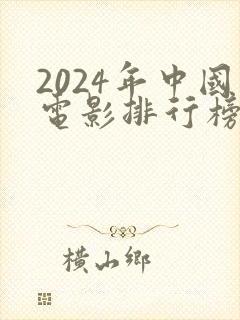 2024年中國
電影排行榜
橫山鄉